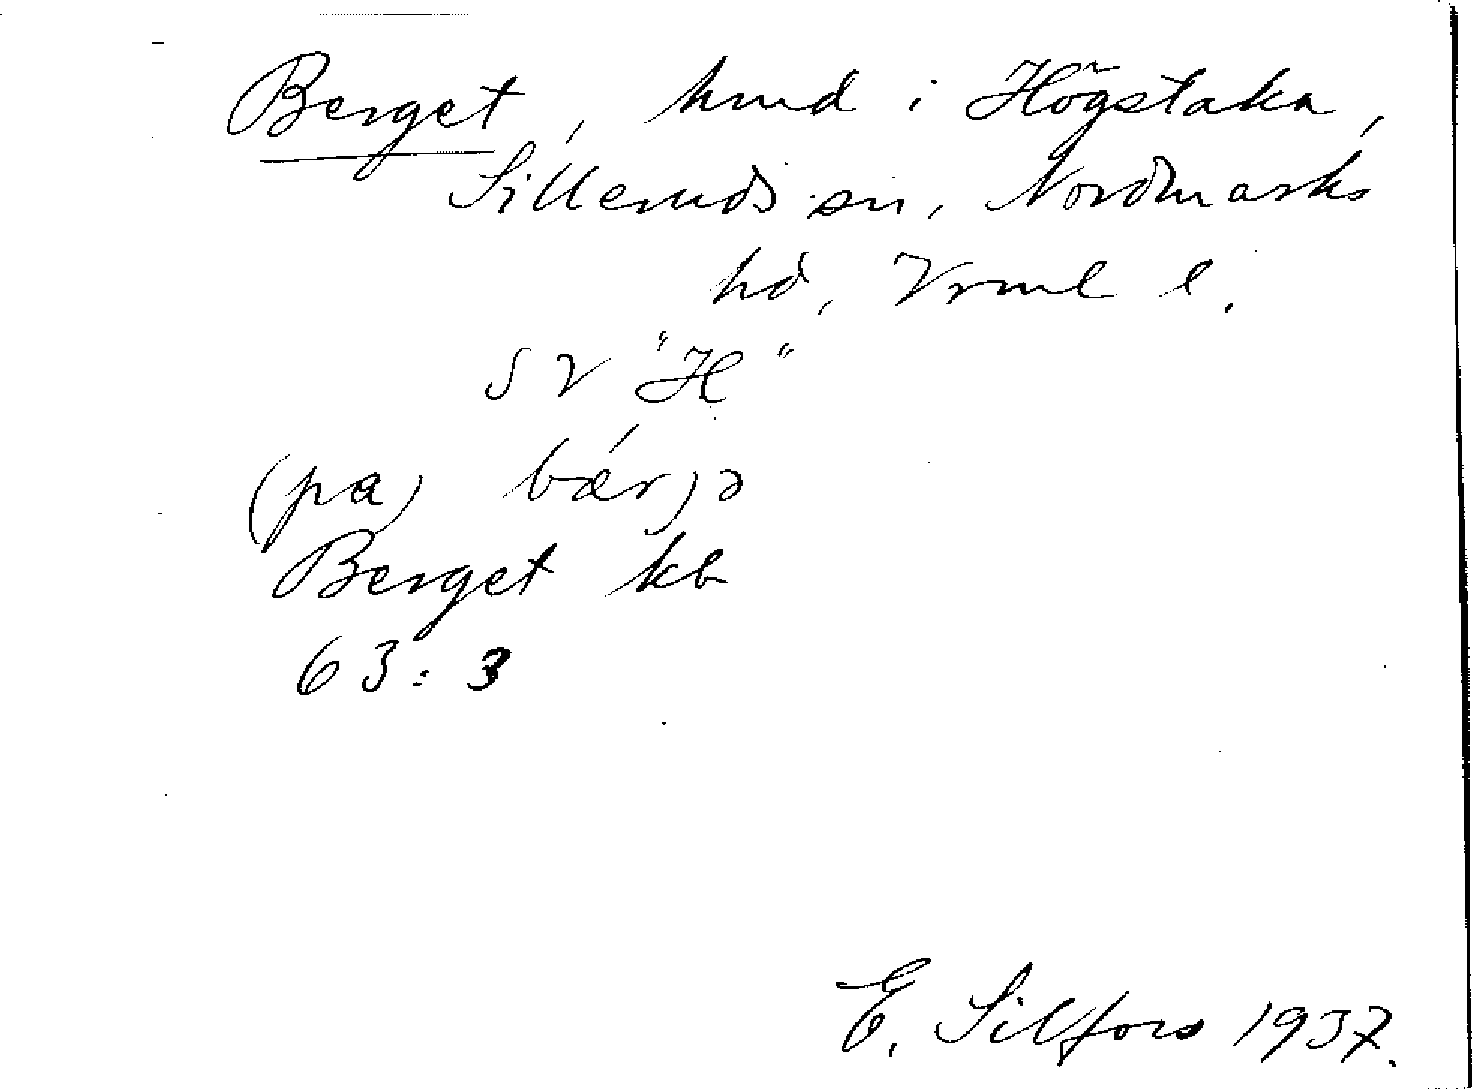 Berget, hmd i Högstaka,
Silleruds sn, Nordmarks
hd, Vrml l.
SV "H"
(pa) bǽrjə
Berget kb
63:3
E. Silfors 1937.